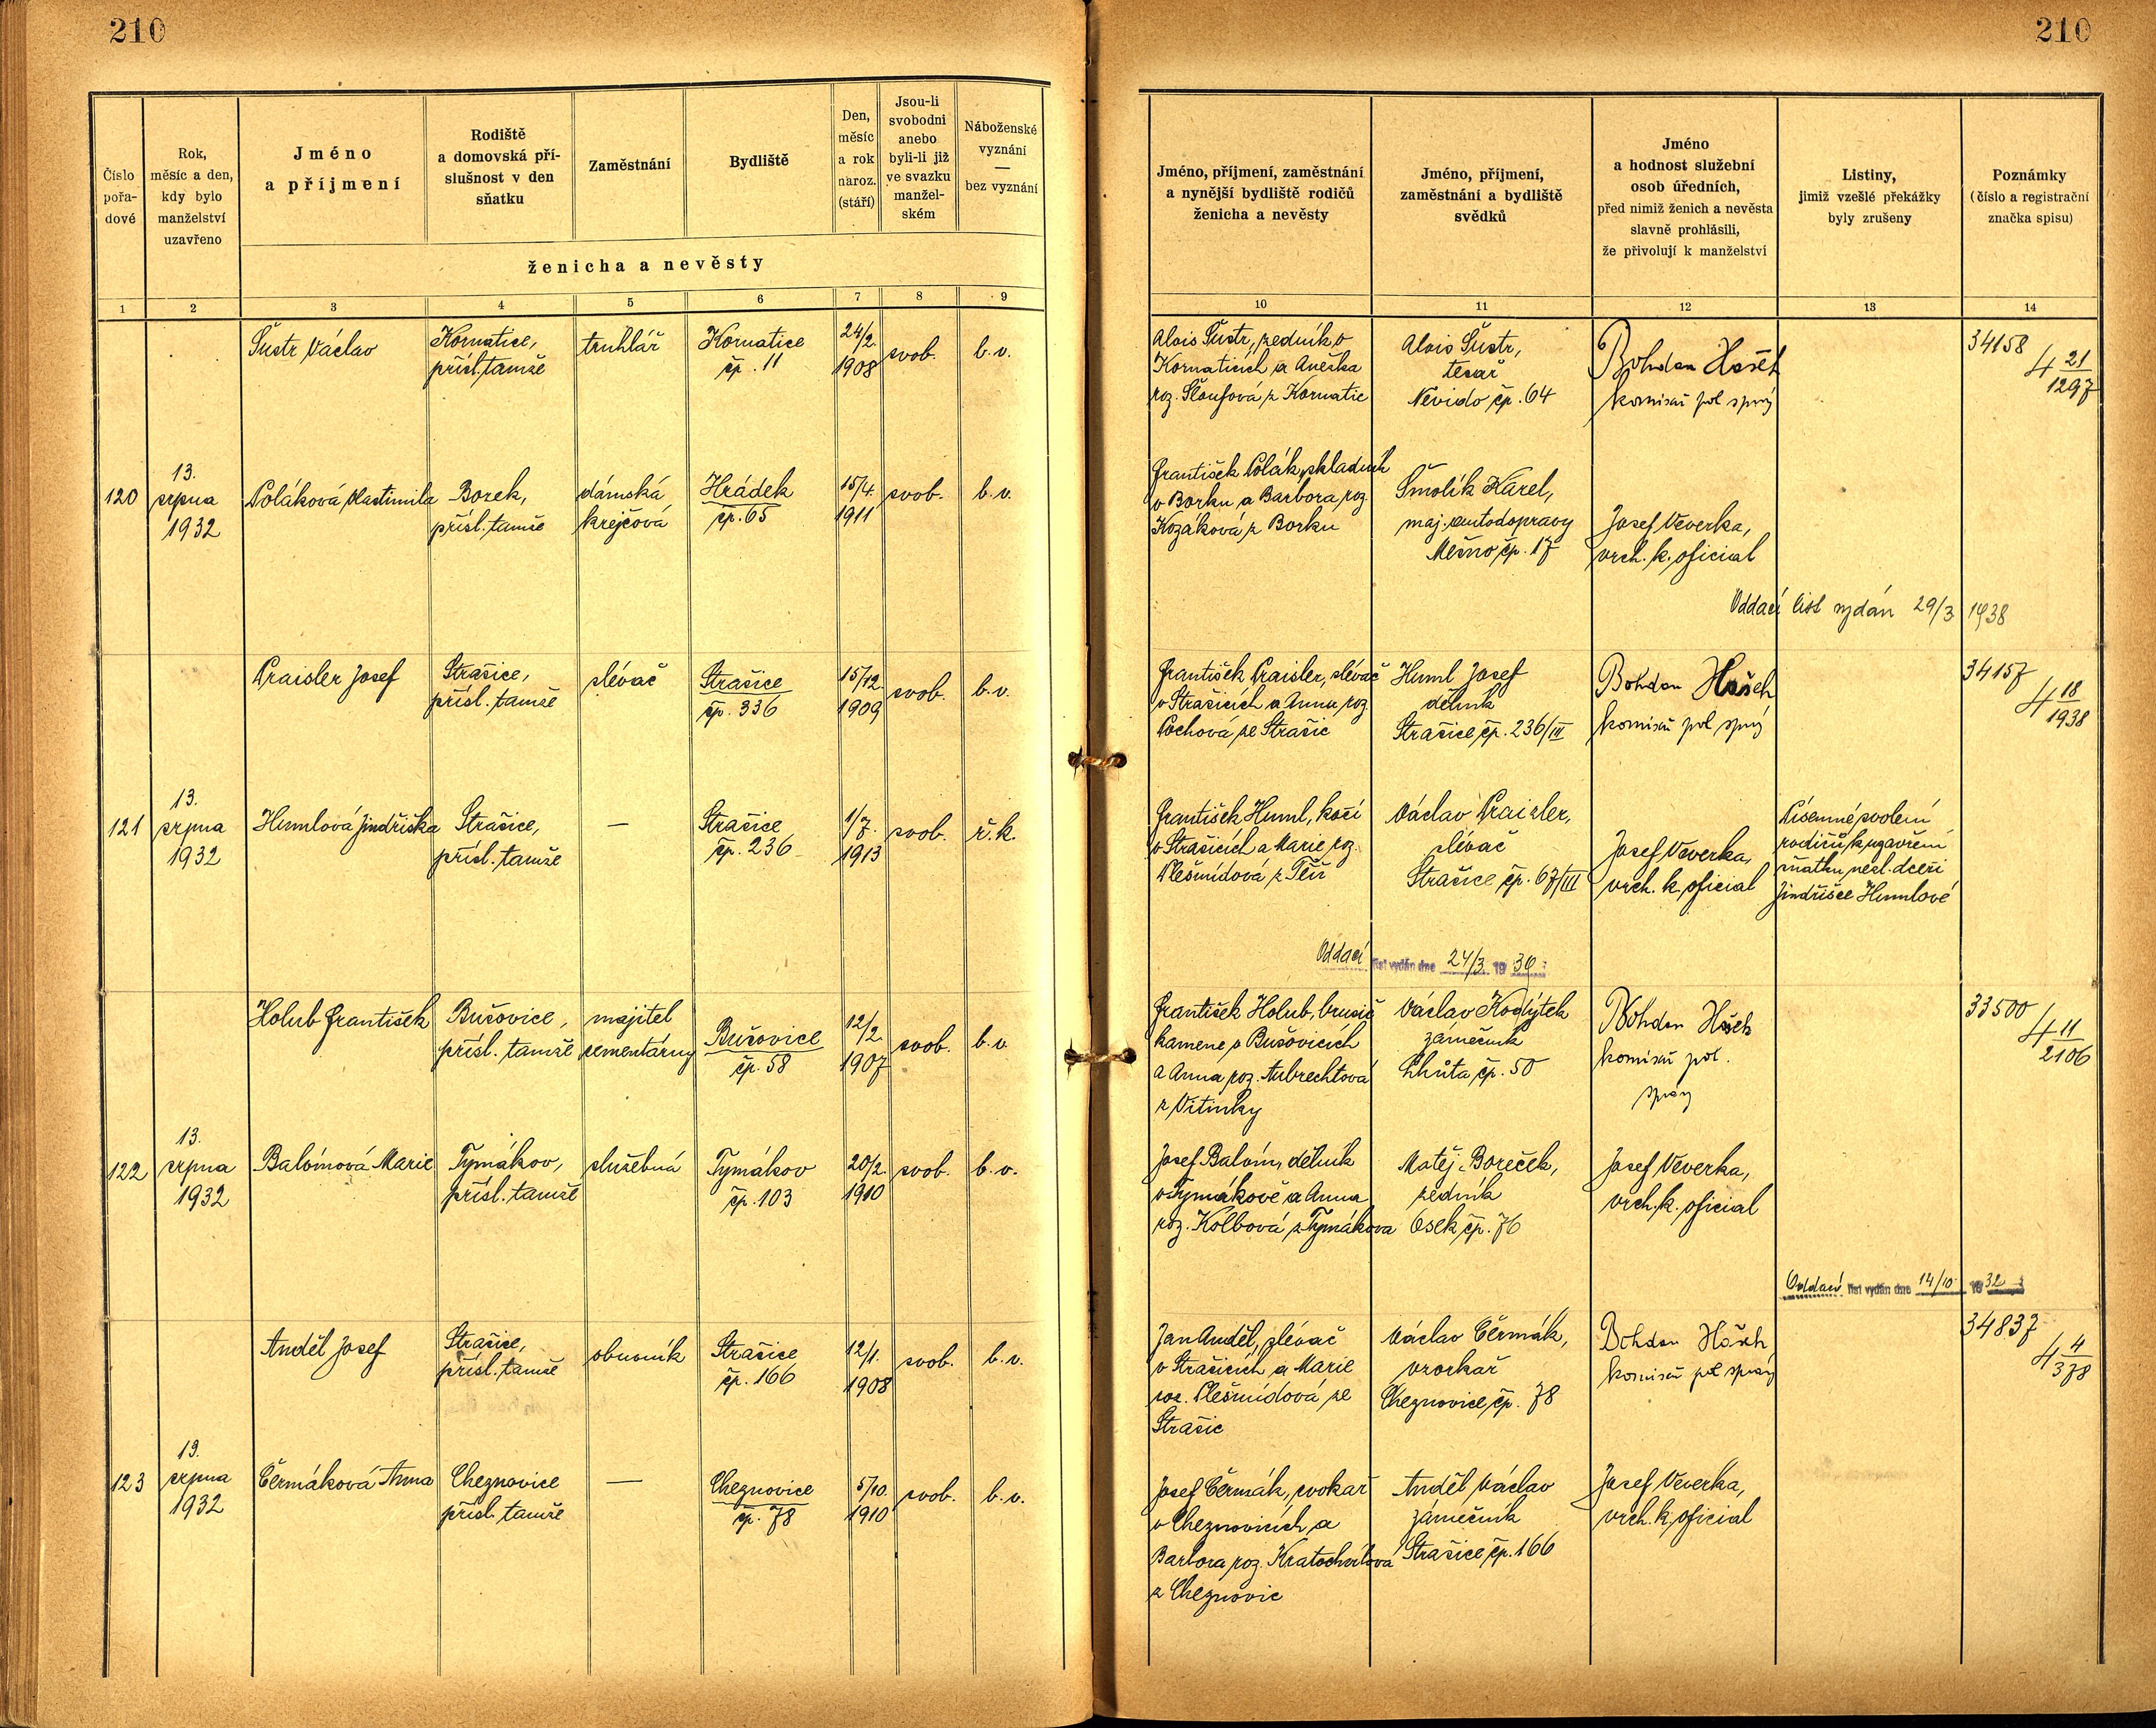 210
210
Číslo pořa-dové
Rok, měsíc a den, kdy bylo manželství uzavřeno
Jméno a příjmení
Rodiště a domovská pří-slušnost v den sňatku
Zaměstnání
Bydliště
Den, měsíc a rok naroz. (stáří)
Jsou-li svobodni anebo byli-li již ve svazku manžel-ském
Náboženské vyznání — bez vyznání
ženicha a nevěsty
1 2 3 4 5 6 7 8 9
Jméno, příjmení, zaměstnání a nynější bydliště rodičů ženicha a nevěsty
Jméno, příjmení, zaměstnání a bydliště svědků
Jméno a hodnost služební osob úředních, před nimiž ženich a nevěsta slavně prohlásili, že přivolují k manželství
Listiny, jimiž vzešlé překážky byly zrušeny
Poznámky (číslo a registrační značka spisu)
10 11 12 13 14
Šustr Václav
Kornatice,
přísl. tamže
truhlář
Kornatice
čp. 11
24/2
1908
svob.
b. v.
Alois Šustr, zedník v
Kornaticích a Anežka
roz. Šloufová z Kornatic
Alois Šustr,
tesař
Nevido čp. 64
Bohdan Hašek
komisař pol správy
34158
4 21/1297
120
13.
srpna
1932
Poláková Vlastimila
Borek,
přísl. tamže
dámská
krejčová
Hrádek
čp. 65
15/4.
1911
svob.
b. v.
František Polák, skladník
v Borku a Barbora roz.
Kozáková z Borku
Šmolík Karel,
maj. autodopravy
Mešno čp. 17
Josef Veverka,
vrch. k. oficial
Oddací list vydán 29/3 1938
Praisler Josef
Strašice,
přísl. tamže
slévač
Strašice
čp. 336
15/12
1909
svob.
b. v.
František Praisler, slévač
v Strašicích a Anna roz.
Cochová ze Strašic
Huml Josef
dělník
Strašice čp. 236/III
Bohdan Hašek
komisař pol správy
34157
4 18/1938
121
13.
srpna
1932
Humlová Jindřiška
Strašice,
přísl. tamže
—
Strašice
čp. 236
1/7.
1913
svob.
ř. k.
František Huml, kočí
v Strašicích a Marie roz.
Plešmídová z Těň
Václav Praisler,
slévač
Strašice čp. 67/III
Josef Veverka,
vrch. k. oficial
Písemné svolení
rodičů k uzavření
sňatku nezl. dceři
Jindřišce Humlové
Oddací list vydán dne 24/3 19 39
Holub František
Bušovice,
přísl. tamže
majitel
cementárny
Bušovice
čp. 58
12/2.
1907
svob.
b. v.
František Holub, brusič
kamene v Bušovicích
a Anna roz. Aubrechtová
z Vitinky
Václav Kodýtek
zámečník
Lhůta čp. 50
Bohdan Hašek
komisař pol.
správy
33500
4 11/2106
122
13.
srpna
1932
Balvínová Marie
Tymákov,
přísl. tamže
služebná
Tymákov
čp. 103
20/2.
1910
svob.
b. v.
Josef Balvín, dělník
v Tymákově a Anna
roz. Kolbová z Tymákova
Matěj Boreček,
zedník
Osek čp. 76
Josef Veverka,
vrch. k. oficial
Oddací list vydán dne 14/10 19 32
Anděl Josef
Strašice,
přísl. tamže
obuvník
Strašice
čp. 166
12/1.
1908
svob.
b. v.
Jan Anděl, slévač
v Strašicích a Marie
roz. Plešmídová ze
Strašic
Václav Čermák,
vzorkař
Cheznovice čp. 78
Bohdan Hašek
komisař pol správy
34837
4 4/378
123
19.
srpna
1932
Čermáková Anna
Cheznovice
přísl. tamže
—
Cheznovice
čp. 78
5/10.
1910
svob.
b. v.
Josef Čermák, cvokař
v Cheznovicích a
Barbora roz. Kratochvílová
z Cheznovic
Anděl Václav
zámečník
Strašice čp. 166
Josef Veverka,
vrch. k. oficial